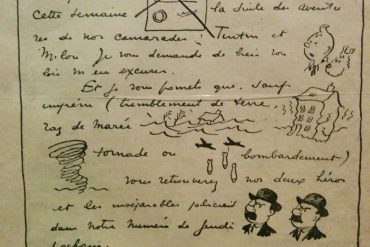 Cette semaine la suite des aventu
res de nos camarades : Tintin et
Milou. Je vous demande de bien vou
loir m'en excuser.
Et je vous promet que, sauf
imprévu (tremblement de terre,
raz de marée
tornade ou bombardement)
vous retrouverez nos deux héros
et les inséparables policiers
dans notre Numéro de Jeudi
prochain.